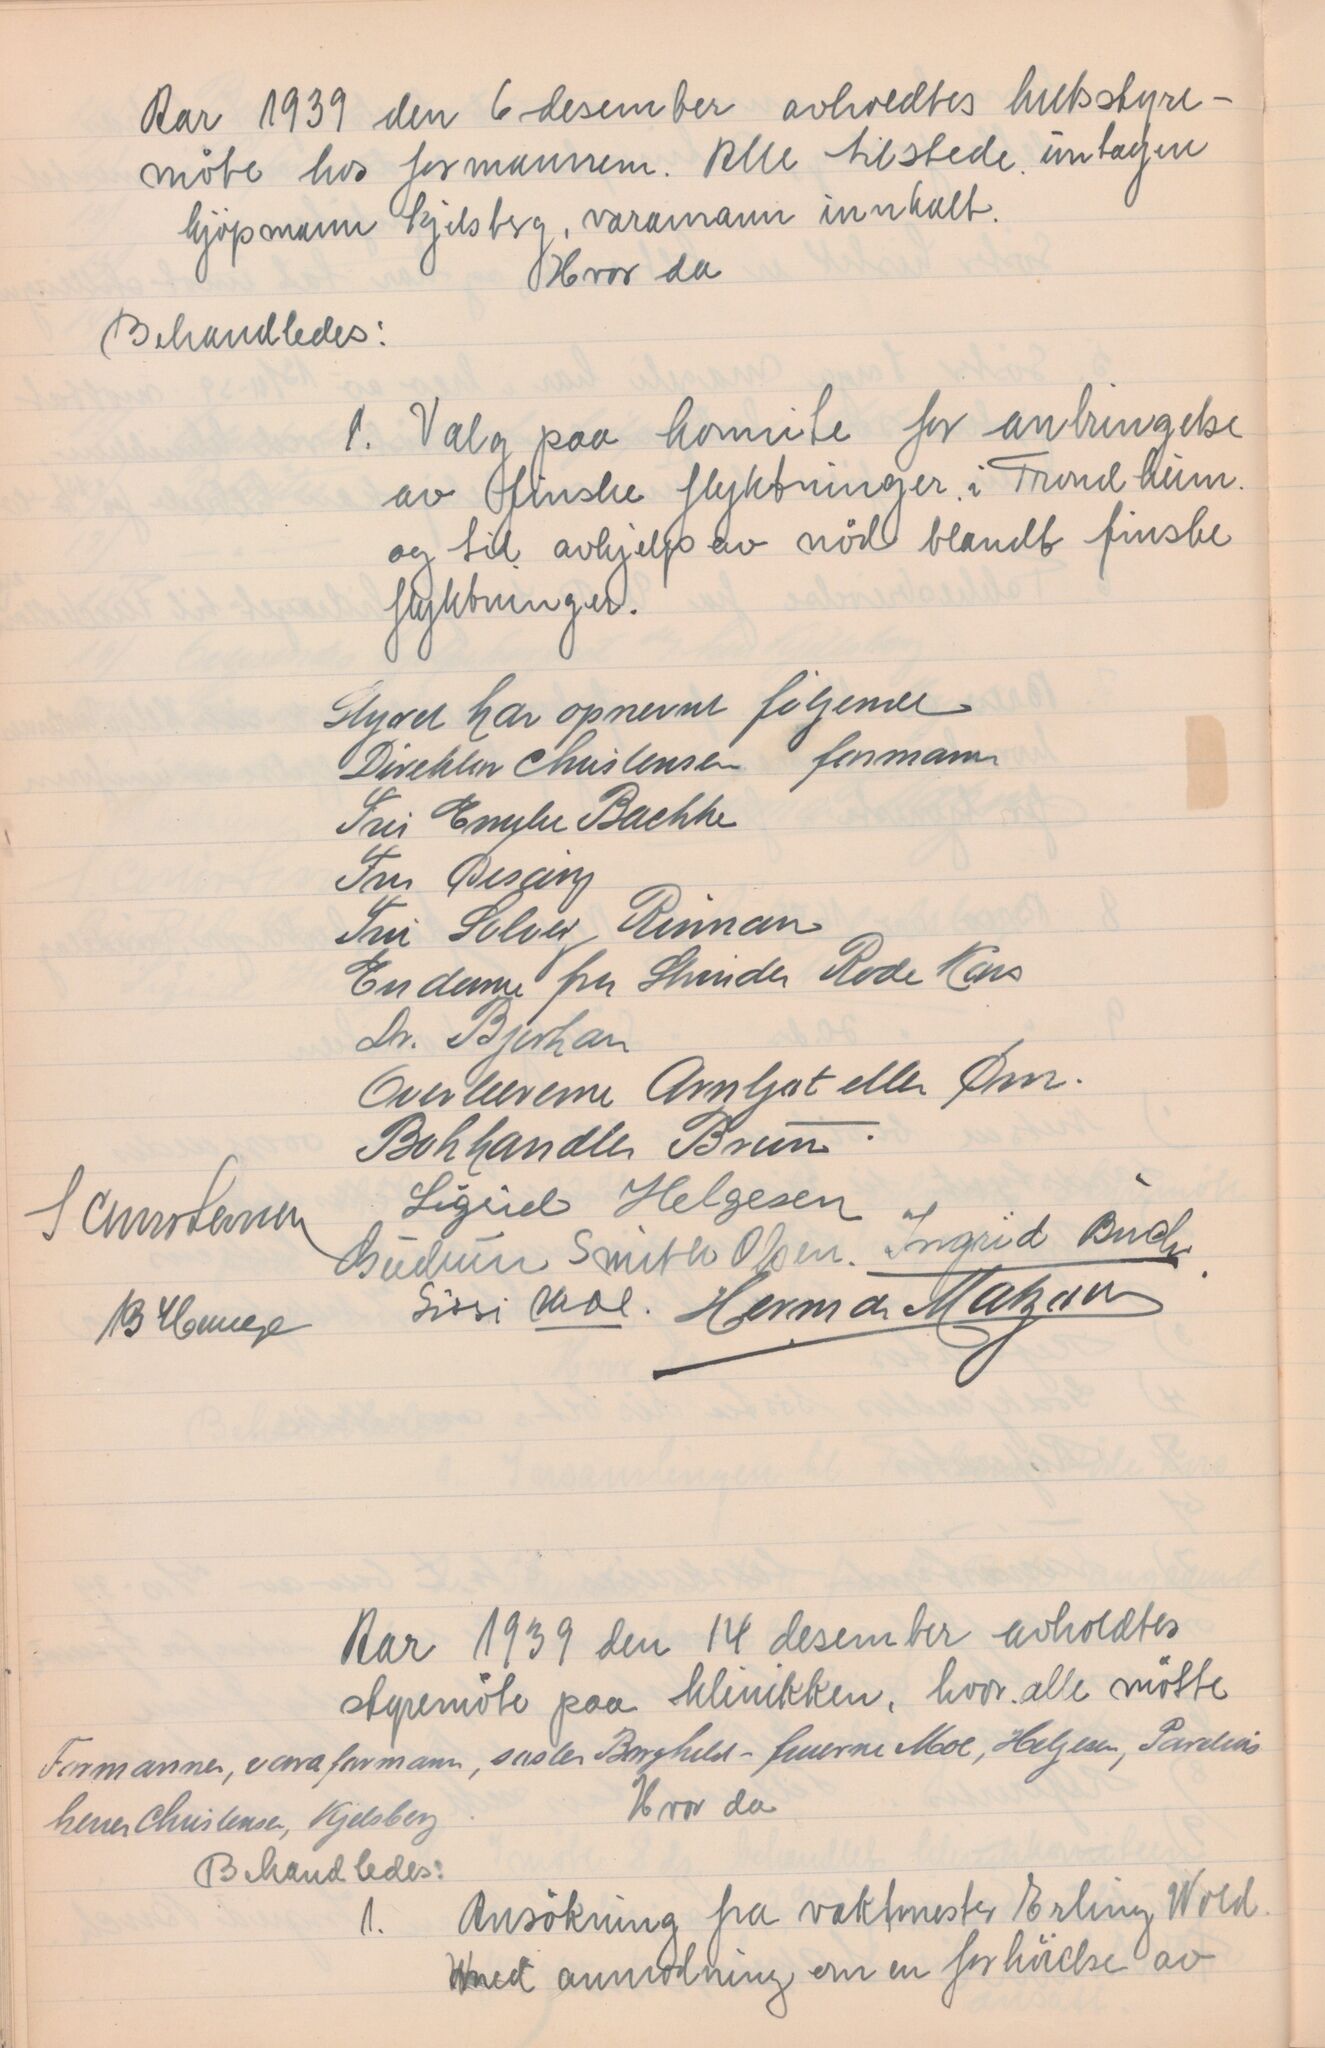 Aar 1939 den 6 desember avholdtes hutsstyre-
möte hos formannem. Alle tilstede untagen
kjöpmann Kjelsberg, varamann innkalt.
Hvor da
Behandledes:
1. Valg paa komite for anbringelse
av finske flyktninger i Trondheim.
og til avhjelp av nöd blandt finske
flyktninger.
Styret har opnevnt følgende
Direktør Christensen formann
Fru Emylie Bachke
Fru
Fru Solveig Rinnan
En dame fra Strinden Röde Kors
Dr. Bjerkan
Overlærerne Arnljot eller Ørn.
Bokhandler Bruun.
S Christensen Sigrid Helgesen
Gudrun Smith Olsen. Ingrid Buch.
B Hauge Sissi Moe. Herman
Aar 1939 den 14 desember avholdtes
styremöte paa klinikken, hvor alle mötte
Formannen, varaformann, söster Borghild - fruerne Moe, Helgesen, Parelius
herrer Christensen, Kjelsberg
Hvor da
Behandledes:
1. Ansökning fra vaktmester Erling Wold.
med anmodning om en forhöielse av